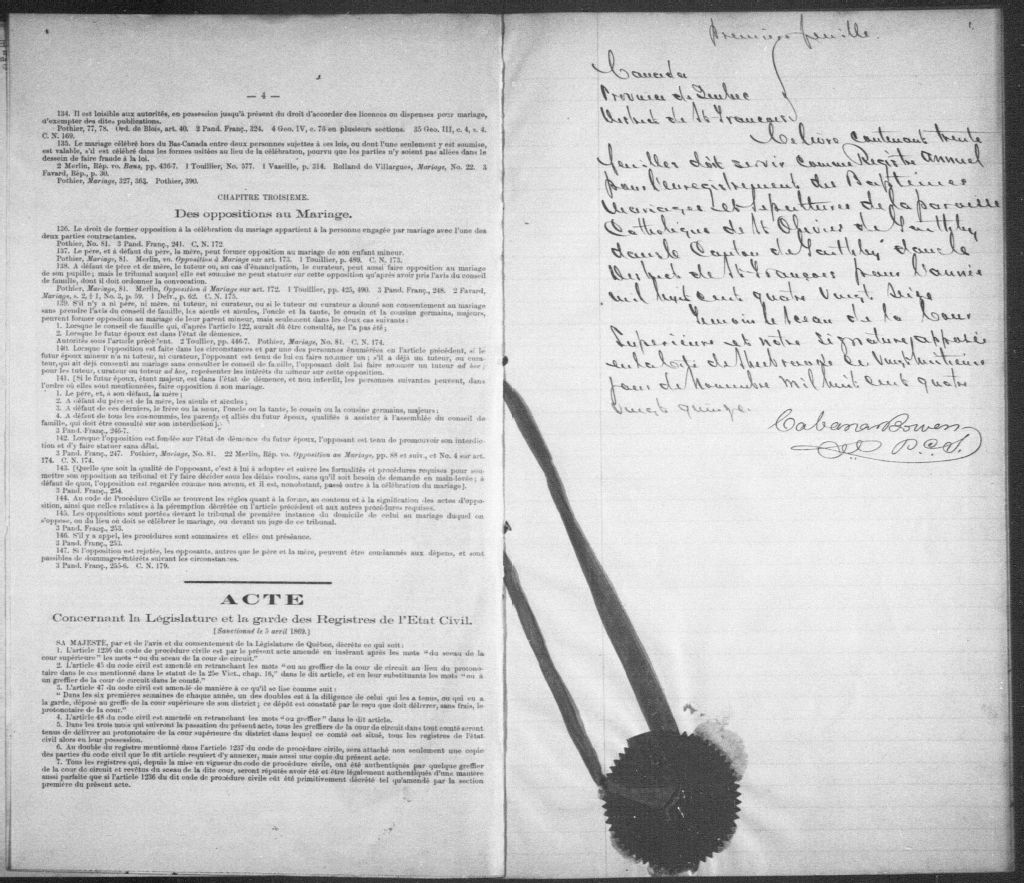 — 4 —
134. Il est loisible aux autorités, en possession jusqu'à présent du droit d'accorder des licences ou dispenses pour mariage,
d'exempter des dites publications.
Pothier, 77, 78. Ord. de Blois, art. 40. 2 Pand. Franç., 324. 4 Geo. IV, c. 76 en plusieurs sections. 35 Geo. III, c. 4, s. 4.
C. N. 169.
135. Le mariage célébré hors du Bas-Canada entre deux personnes sujettes à ces lois, ou dont l'une seulement y est soumise,
est valable, s'il est célébré dans les formes usitées au lieu de la célébration, pourvu que les parties n'y soient pas allées dans le
dessein de faire fraude à la loi.
2 Merlin, Rép. vo. Bans, pp. 436-7. 1 Toullier, No. 577. 1 Vazeille, p. 314. Rolland de Villargues, Mariage, No. 22. 3
Favard, Rép., p. 30.
Pothier, Mariage, 327, 363. Pothier, 390.
CHAPITRE TROISIEME.
Des oppositions au Mariage.
136. Le droit de former opposition à la célébration du mariage appartient à la personne engagée par mariage avec l'une des
deux parties contractantes.
Pothier, No. 81. 3 Pand. Franç., 241. C. N. 172.
137. Le père, et à défaut du père, la mère, peut former opposition au mariage de son enfant mineur.
Pothier, Mariage, 81. Merlin, vo. Opposition à Mariage sur art. 173. 1 Toullier, p. 489. C. N. 173.
138. A défaut de père et de mère, le tuteur ou, au cas d'émancipation, le curateur, peut aussi faire opposition au mariage
de son pupille; mais le tribunal auquel elle est soumise ne peut statuer sur cette opposition qu'après avoir pris l'avis du conseil
de famille, dont il doit ordonner la convocation.
Pothier, Mariage, 81. Merlin, Opposition à Mariage sur art. 172. 1 Toullier, pp. 425, 490. 3 Pand. Franç., 248. 2 Favard,
Mariage, s. 2, § 1, No. 3, p. 59. 1 Delv., p. 62. C. N. 175.
139. S'il n'y a ni père, ni mère, ni tuteur, ni curateur, ou si le tuteur ou curateur a donné son consentement au mariage
sans prendre l'avis du conseil de famille, les aïeuls et aïeules, l'oncle et la tante, le cousin et la cousine germains, majeurs,
peuvent former opposition au mariage de leur parent mineur, mais seulement dans les deux cas suivants:
1. Lorsque le conseil de famille qui, d'après l'article 122, aurait dû être consulté, ne l'a pas été;
2. Lorsque le futur époux est dans l'état de démence.
Autorités sous l'article précédent. 2 Toullier, pp. 446-7. Pothier, Mariage, No. 81. C. N. 174.
140. Lorsque l'opposition est faite dans les circonstances et par une des personnes énumérées en l'article précédent, si le
futur époux mineur n'a ni tuteur, ni curateur, l'opposant est tenu de lui en faire nommer un; s'il a déjà un tuteur, ou cura-
teur, qui ait déjà consenti au mariage sans consulter le conseil de famille, l'opposant doit lui faire nommer un tuteur ad hoc;
pour les tuteur, curateur ou tuteur ad hoc, représenter les intérêts du mineur sur cette opposition.
141. [Si le futur époux, étant majeur, est dans l'état de démence, et non interdit, les personnes suivantes peuvent, dans
l'ordre où elles sont mentionnées, faire opposition à son mariage.
1. Le père, et, à son défaut, la mère;
2. A défaut du père et de la mère, les aïeuls et aïeules;
3. A défaut de ces derniers, le frère ou la sœur, l'oncle ou la tante, le cousin ou la cousine germains, majeurs;
4. A défaut de tous les sus-nommés, les parents et alliés du futur époux, qualifiés à assister à l'assemblée du conseil de
famille, qui doit être consulté sur son interdiction].
3 Pand. Franç., 246-7.
142. Lorsque l'opposition est fondée sur l'état de démence du futur époux, l'opposant est tenu de promouvoir son interdic-
tion et d'y faire statuer sans délai.
3 Pand. Franç., 247. Pothier, Mariage, No. 81. 22 Merlin, Rép. vo. Opposition au Mariage, pp. 88 et suiv., et No. 4 sur art.
174. C. N. 174.
143. [Quelle que soit la qualité de l'opposant, c'est à lui à adopter et suivre les formalités et procédures requises pour sou-
mettre son opposition au tribunal et l'y faire décider sous les délais voulus, sans qu'il soit besoin de demande en main-levée; à
défaut de quoi, l'opposition est regardée comme non avenue, et il est, nonobstant, passé outre à la célébration du mariage].
3 Pand. Franç., 254.
144. Au code de Procédure Civile se trouvent les règles quant à la forme, au contenu et à la signification des actes d'oppo-
sition, ainsi que celles relatives à la péremption décrétée en l'article précédent et aux autres procédures requises.
145. Les oppositions sont portées devant le tribunal de première instance du domicile de celui au mariage duquel on
s'oppose, ou du lieu où doit se célébrer le mariage, ou devant un juge de ce tribunal.
3 Pand. Franç., 253.
146. S'il y a appel, les procédures sont sommaires et elles ont préséance.
3 Pand. Franç., 253.
147. Si l'opposition est rejetée, les opposants, autres que le père et la mère, peuvent être condamnés aux dépens, et sont
passibles de dommages-intérêts suivant les circonstances.
3 Pand. Franç., 255-6. C. N. 179.
ACTE
Concernant la Législature et la garde des Registres de l'Etat Civil.
[Sanctionné le 5 avril 1869.]
SA MAJESTÉ, par et de l'avis et du consentement de la Législature de Québec, décrète ce qui suit:
1. L'article 1236 du code de procédure civile est par le présent acte amendé en insérant après les mots "du sceau de la
cour supérieure" les mots "ou du sceau de la cour de circuit."
2. L'article 45 du code civil est amendé en retranchant les mots "ou au greffier de la cour de circuit au lieu du protono-
taire dans le cas mentionné dans le statut de la 25e Vict., chap. 16," dans le dit article, et en leur substituants les mots "ou à
un greffier de la cour de circuit dans le comté."
3. L'article 47 du code civil est amendé de manière à ce qu'il se lise comme suit:
"Dans les six premières semaines de chaque année, un des doubles est à la diligence de celui qui les a tenus, ou qui en a
la garde, déposé au greffe de la cour supérieure de son district; ce dépôt est constaté par le reçu que doit délivrer, sans frais, le
protonotaire de la cour."
4. L'article 48 du code civil est amendé en retranchant les mots "ou greffier" dans le dit article.
5. Dans les trois mois qui suivront la passation du présent acte, tous les greffiers de la cour de circuit dans tout comté seront
tenus de délivrer au protonotaire de la cour supérieure du district dans lequel ce comté est situé, tous les registres de l'état
civil alors en leur possession.
6. Au double du registre mentionné dans l'article 1237 du code de procédure civile, sera attaché non seulement une copie
des parties du code civil que le dit article requiert d'y annexer, mais aussi une copie du présent acte.
7. Tous les registres qui, depuis la mise en vigueur du code de procédure civile, ont été authentiqués par quelque greffier
de la cour de circuit et revêtus du sceau de la dite cour, seront réputés avoir été et être légalement authentiqués d'une manière
aussi parfaite que si l'article 1236 du dit code de procédure civile eût été primitivement décrété tel qu'amendé par la section
première du présent acte.
Premier feuille.
Canada
Province de Quebec
District de St Francois
Ce livre contenant trente
feuilles doit servir comme Registre annuel
pour l'enregistrement des Baptemes
Mariages et sepultures de la paroisse
Catholique de St Olivier de
dans le Canton de dans le
District de St Francois pour l'année
mil huit cent quatre vingt seize
Temoin le sceau de la Cour
Superieure et notre signature apposée
en la cité de Sherbrooke ce vingt huitieme
jour de Novembre mil huit cent quatre
vingt quinze.
Cabana & Bowen
P.C.S.